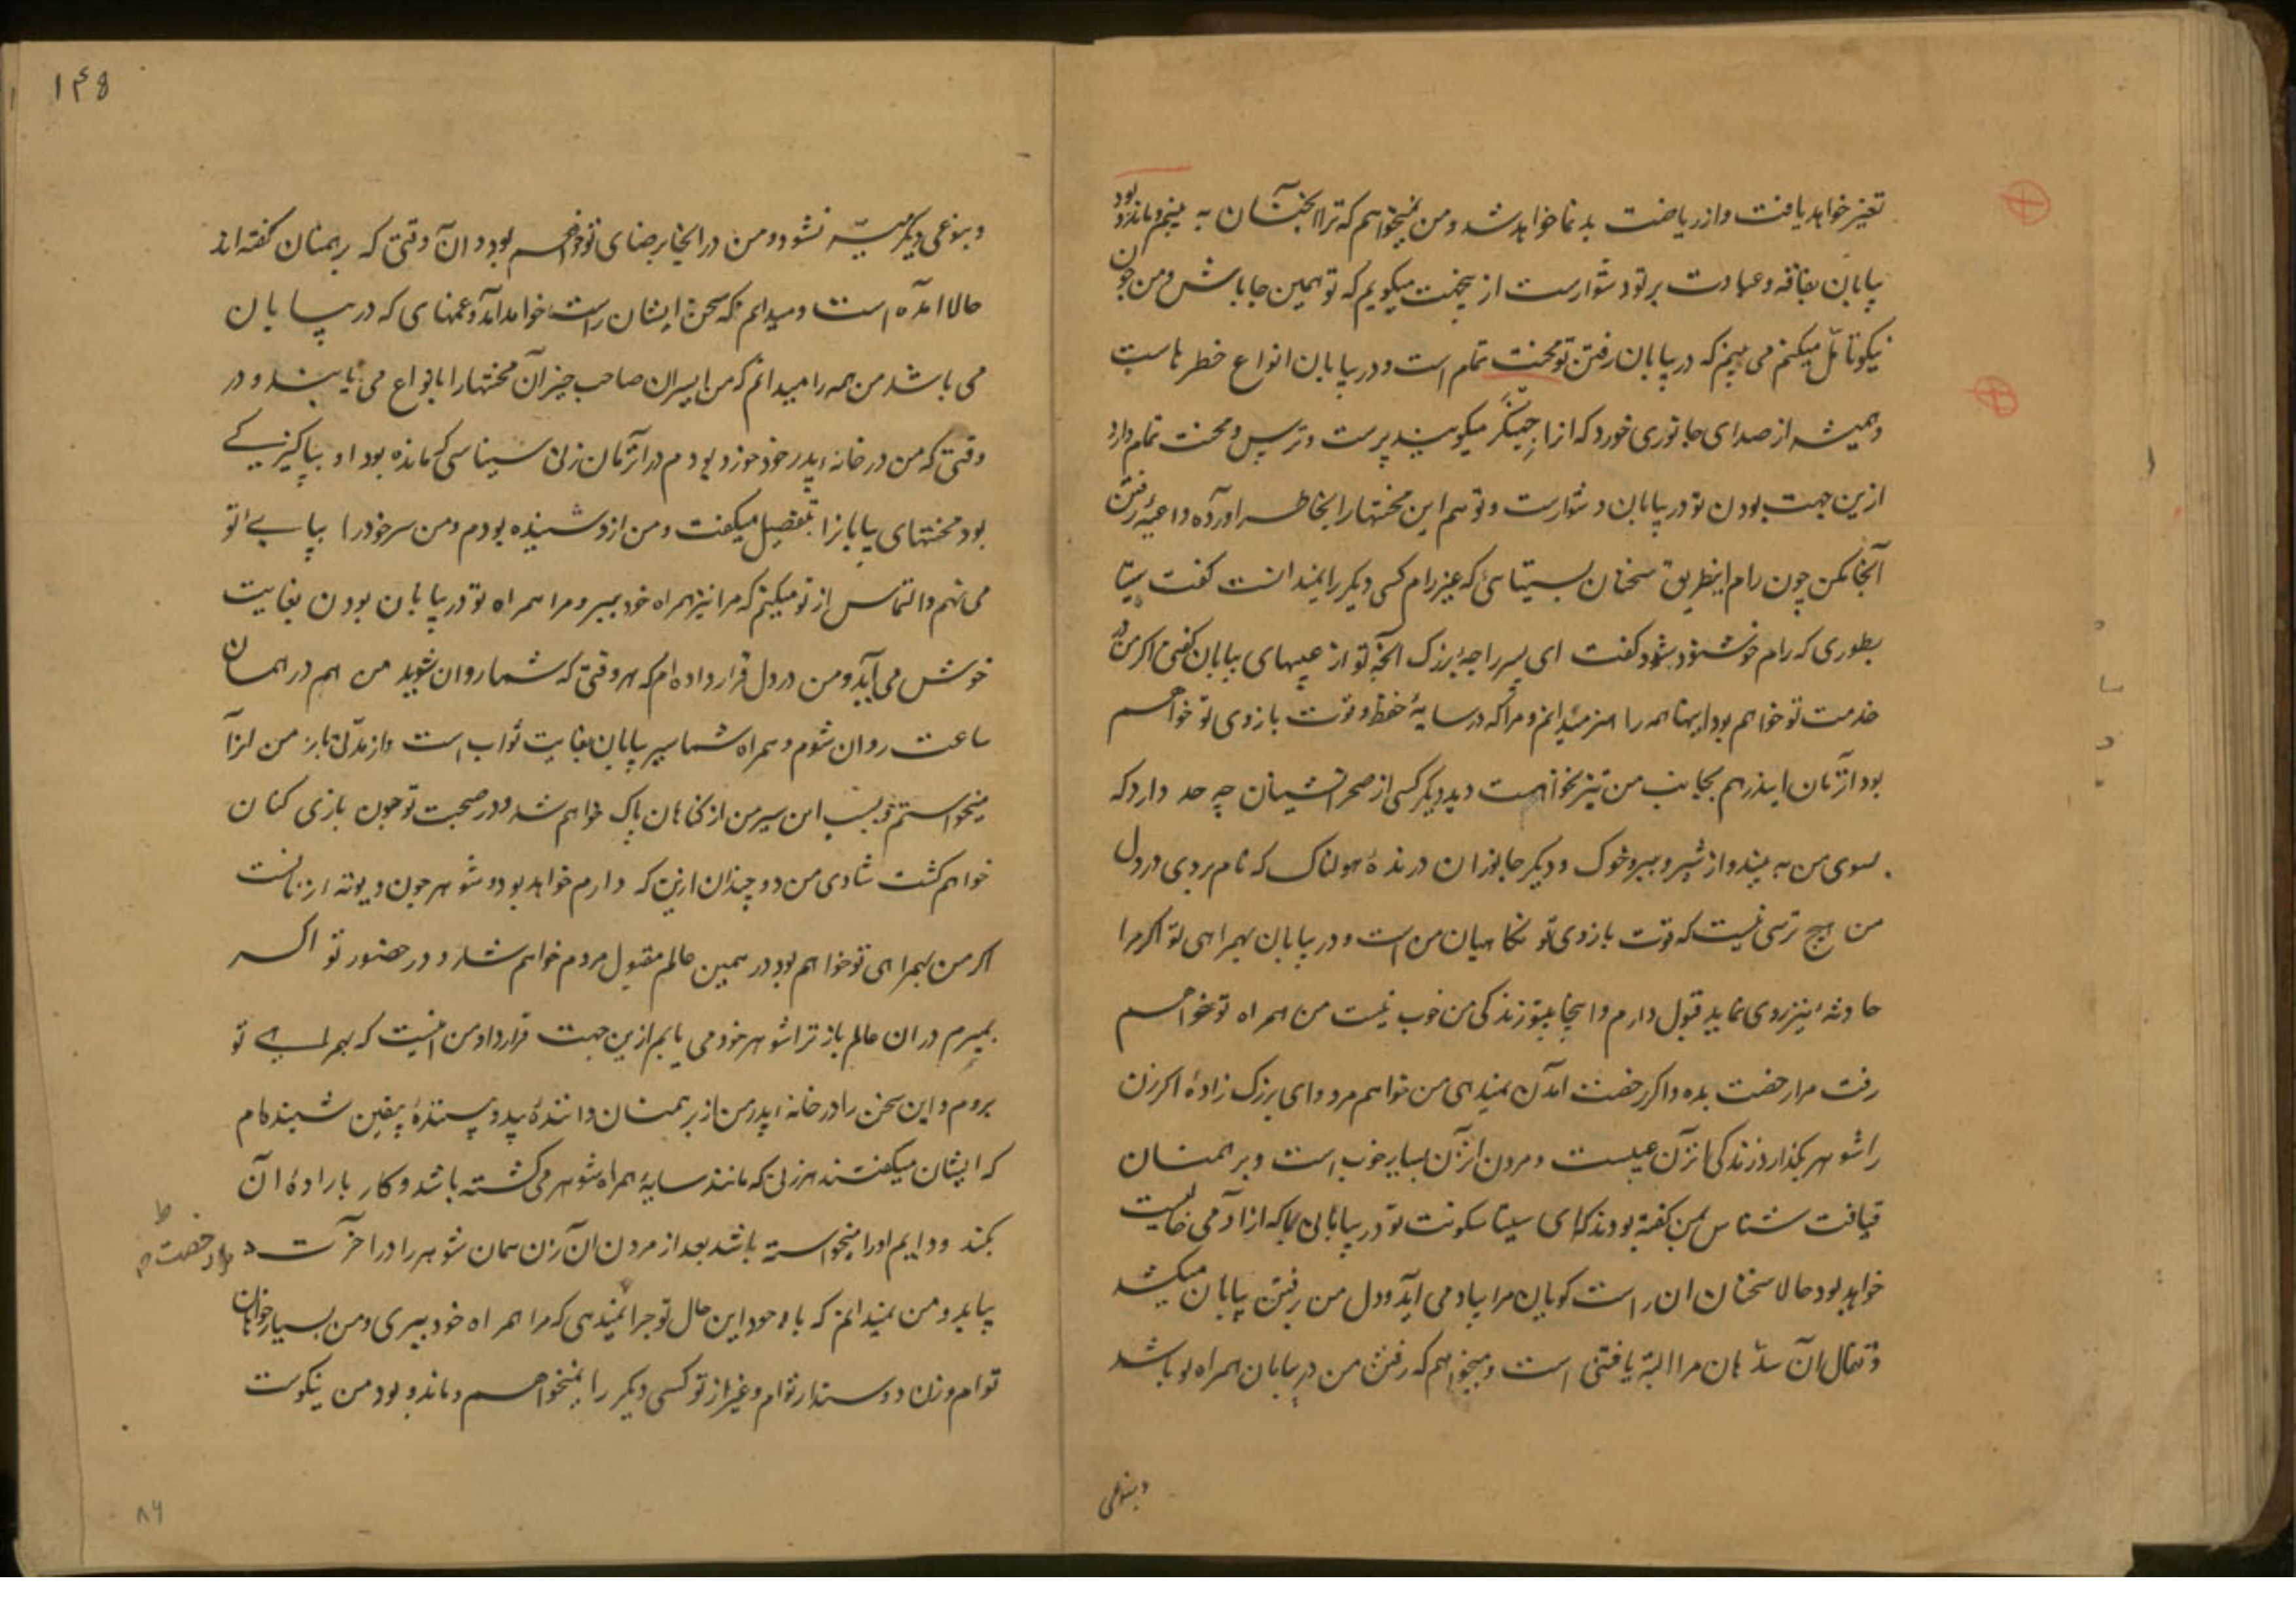 تغیر خواهد یافت و از ریاضت بد نما خواهد شد و من نمیخواهم که ترا انچنان به بینم و ماندن و بود
بیابان بفاقه و عبادت بر تو دشوارست از یجهت میگویم که تو همین جا باش و من چون
نیکو تامّل میکنم می بینم که در بیابان رفتن تو محنت تمام است و در بیابان انواع خطر هاست
و همیشه از صدای جانوری خورد که انرا جهینگر میگویند پرست و ترس و محنت تمام دارد
ازین جهت بودن تو در بیابان دشوارست و تو هم این محنتها را بخاطر اورده داعیهٔ رفتن
آنجا مکن چون رام اینطریق سخنان بسیتا که غیر رام کسی دیگر را نمیدانست گفت سیتا
بطوری که رام خوشنود شود گفت ای پسر راجهٔ بزرگ آنچه تو از عیبهای بیابان گفتی اگر من در
خدمت تو خواهم بود اینها همه را هنر میدانم و مرا که در سایهٔ حفظ و قوت بازوی تو خواهم
بود ازان ایندر هم بجانب من تیز نخواهد دید دیگر کسی از صحرا نشینان چه حد دارد که
بسوی من به بیند و از شیر و ببر و خوک و دیگر جانوران درندهٔ هولناک که نام بردی در دل
من هیچ ترسی نیست که قوت بازوی تو نگاهبان من است و در بیابان بهمراهی تو اگر مرا
حادثهٔ نیز روی نماید قبول دارم و اینجا بیتو زندگی من خوب نیست من همراه تو خواهم
رفت مرا رخصت بده و اگر رخصت آمدن نمیدهی من خواهم مرد و ای بزرگ زاده اگر زن
را شوهر بگذارد زندگی انزن عیبست و مردن انزن بسیار خوب است و برهمنان
قیافت شناس بمن گفته بودند که ای سیتا سکونت تو در بیابانی که از آدمی خالیست
خواهد بود حالا سخنان ان راست گویان مرا بیاد می آید و دل من رفتن بیابان میکشد
و تفال آن برهمنان مرا البته یافتنی است و میخواهم که رفتن من در بیابان همراه تو باشد
وبنوعی
۱۴۵
وبنوعی دیگر میسّر نشود و من در اینجا برضای تو خواهم بود و ان وقتی که برهمنان گفته اند
حالا آمده است و میدانم که سخن ایشان راست خواهد آمد و غمهای که در بیابان
می باشد من همه را میدانم که پسران صاحب چیز آن محنتها را بانواع می یابند و در
وقتی که من در خانهٔ پدر خود خورد بودم در انزمان زنی سناسی که مانده بود او بپاکیزگی
بود محنتهای بیابانرا بتفصیل میگفت و من ازو شنیده بودم و من سر خود را بپای تو
می نهم و التماس از تو میکنم که مرا نیز همراه خود ببر و مرا همراه تو در بیابان بودن بغایت
خوش می آید و من در دل قرار داده ام که هر وقتی که شما روان شوید من هم در همان
ساعت روان شوم و همراه شما سیر بیابان بغایت ثواب است و از مدتی باز من انرا
میخواستم و بسبب این سیر من از گناهان پاک خواهم شد و در صحبت تو چون بازی کنان
خواهم گشت شادی من دو چندان ازین که دارم خواهد بود و شوهر چون دیوته زنانست
اگر من بهمراهی تو خواهم بود در همین عالم مقبول مردم خواهم شد و در حضور تو اگر
بمیرم در ان عالم باز ترا شوهر خود می یابم ازین جهت قرارداد من اینست که بهمراهی تو
بروم و این سخن را در خانهٔ پدر من از برهمنان دانندهٔ بید و پسندهٔ یقین شنیده ام
که ایشان میگفتند هر زنی که مانند سایهٔ همراه شوهر می گشته باشد و کار بارادهٔ آن
بکند و دایم او را میخواسته باشد بعد از مردن ان زن همان شوهر را در اخرت
رخصت
بیابد و من نمیدانم که با وجود این حال تو چرا نمیدهی که مرا همراه خود ببری و من بسیار خواهان
توام و زن دوستدار توام و غیر از تو کسی دیگر را نمیخواهم و ماند و بود من نیکوست
۸۴